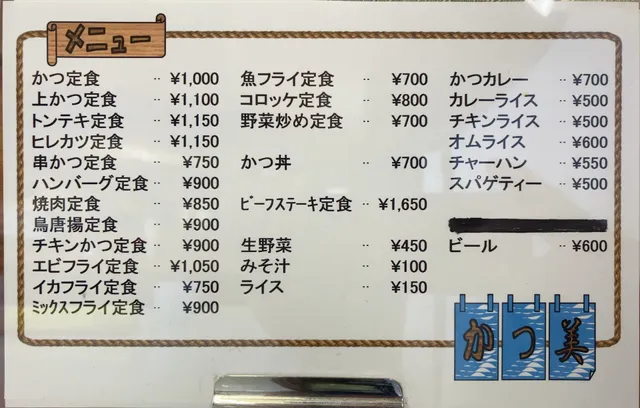 メニュー
かつ定食 ‥ ¥1,000
上かつ定食 ‥ ¥1,100
トンテキ定食 ‥ ¥1,150
ヒレカツ定食 ‥ ¥1,150
串かつ定食 ‥ ¥750
ハンバーグ定食 ‥ ¥900
焼肉定食 ‥ ¥850
鳥唐揚定食 ‥ ¥900
チキンかつ定食 ‥ ¥900
エビフライ定食 ‥ ¥1,050
イカフライ定食 ‥ ¥750
ミックスフライ定食 ‥ ¥900
魚フライ定食 ‥ ¥700
コロッケ定食 ‥ ¥800
野菜炒め定食 ‥ ¥700
かつ丼 ‥ ¥700
ビーフステーキ定食 ‥ ¥1,650
生野菜 ‥ ¥450
みそ汁 ‥ ¥100
ライス ‥ ¥150
かつカレー ‥ ¥700
カレーライス ‥ ¥500
チキンライス ‥ ¥500
オムライス ‥ ¥600
チャーハン ‥ ¥550
スパゲティー ‥ ¥500
ビール ‥ ¥600
かつ美